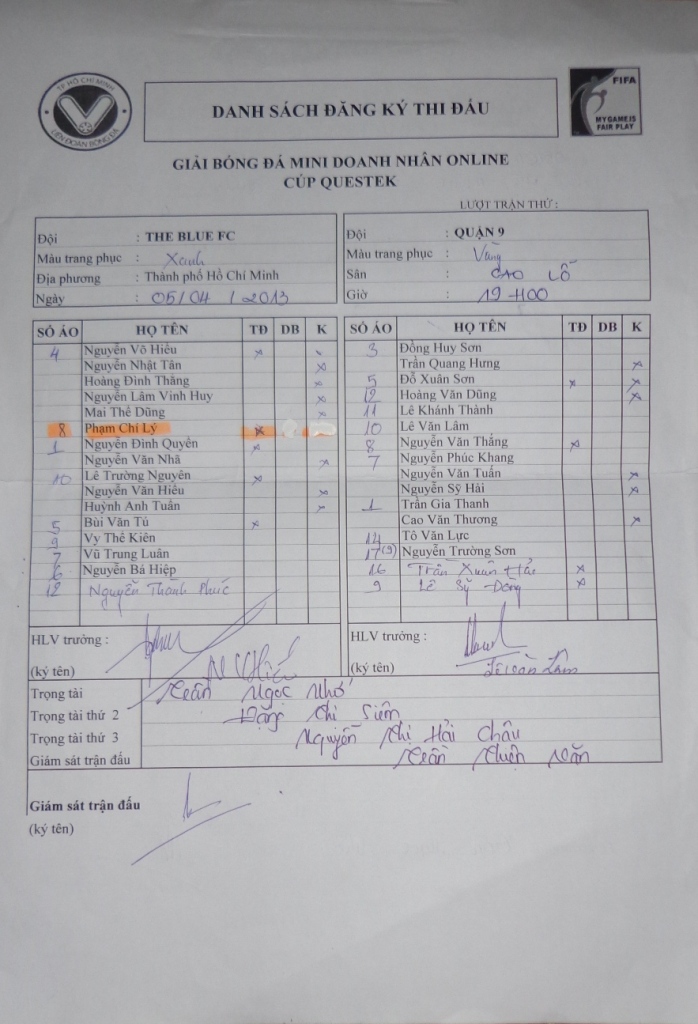 TP HỒ CHÍ MINH
LIÊN ĐOÀN BÓNG ĐÁ
DANH SÁCH ĐĂNG KÝ THI ĐẤU
FIFA
MY GAME IS
FAIR PLAY
GIẢI BÓNG ĐÁ MINI DOANH NHÂN ONLINE
CÚP QUESTEK
LƯỢT TRẬN THỨ :
Đội : THE BLUE FC
Màu trang phục : Xanh
Địa phương : Thành phố Hồ Chí Minh
Ngày : 05/04/2013
Đội : QUẬN 9
Màu trang phục : Vàng
Sân : CAO LỖ
Giờ : 19 H00
SỐ ÁO HỌ TÊN TĐ DB K
4 Nguyễn Võ Hiếu x
Nguyễn Nhật Tân x
Hoàng Đình Thăng x
Nguyễn Lâm Vinh Huy x
Mai Thế Dũng x
8 Phạm Chí Lý x
1 Nguyễn Đình Quyền x
Nguyễn Văn Nhã x
10 Lê Trường Nguyên x
Nguyễn Văn Hiếu x
Huỳnh Anh Tuấn x
5 Bùi Văn Tú x
9 Vy Thế Kiên
7 Vũ Trung Luân
6 Nguyễn Bá Hiệp
12 Nguyễn Thành Phúc
HLV trưởng :
(ký tên)
SỐ ÁO HỌ TÊN TĐ DB K
3 Đồng Huy Sơn
Trần Quang Hưng x
5 Đỗ Xuân Sơn x x
12 Hoàng Văn Dũng x
11 Lê Khánh Thành
10 Lê Văn Lâm
8 Nguyễn Văn Thắng x
7 Nguyễn Phúc Khang
Nguyễn Văn Tuấn x
Nguyễn Sỹ Hải x
1 Trần Gia Thanh
Cao Văn Thương x
14 Tô Văn Lực
17(9) Nguyễn Trường Sơn
16 Trần Xuân Hải x
9 Lê Sỹ Dũng x
HLV trưởng :
(ký tên)
Trọng tài Trần Ngọc Nhớ
Trọng tài thứ 2 Đặng Thi
Trọng tài thứ 3 Nguyễn Thi Hải Châu
Giám sát trận đấu Trần Thiện Văn
Giám sát trận đấu
(ký tên)